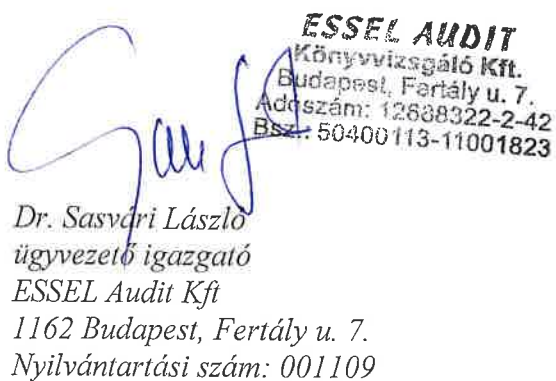 ESSEL AUDIT
Könyvvizsgáló Kft.
Budapest, Fertály u. 7.
Adószám: 12688322-2-42
Bsz.: 50400113-11001823
Dr. Sasvári László
ügyvezető igazgató
ESSEL Audit Kft
1162 Budapest, Fertály u. 7.
Nyilvántartási szám: 001109